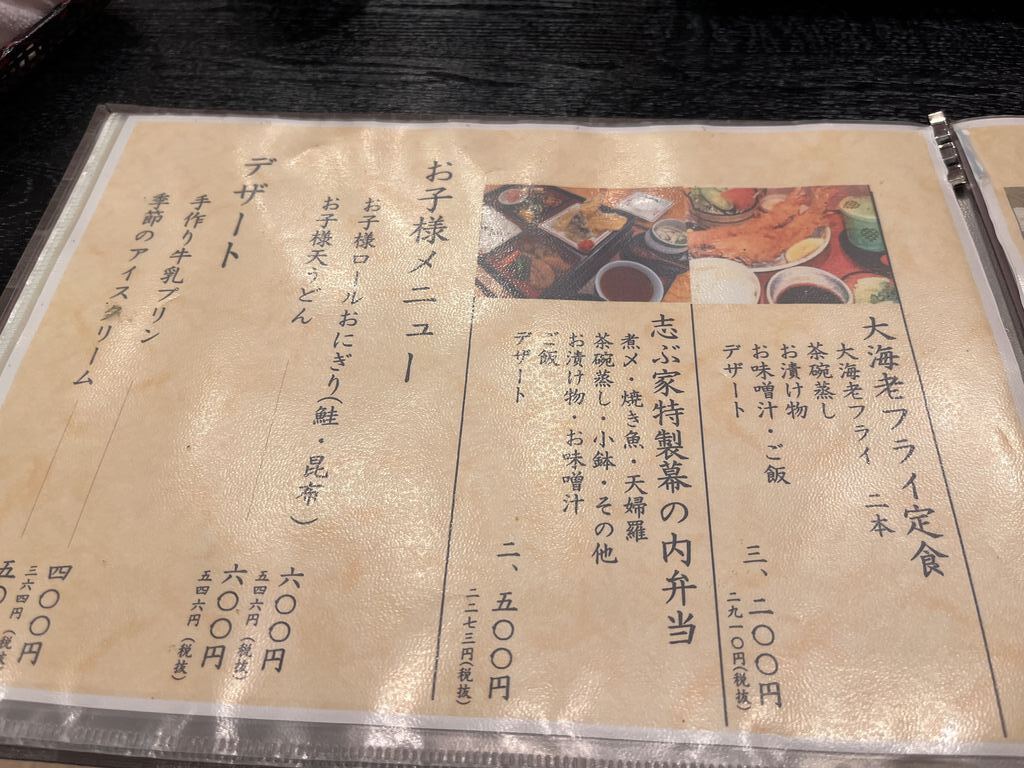 大海老フライ定食
大海老フライ 二本
茶碗蒸し
お漬け物
お味噌汁・ご飯
デザート
三、二〇〇円
二九一〇円(税抜)
志ぶ家特製幕の内弁当
煮〆・焼き魚・天婦羅
茶碗蒸し・小鉢・その他
お漬け物・お味噌汁
ご飯
デザート
二、五〇〇円
二二七三円(税抜)
お子様メニュー
お子様ロールおにぎり(鮭・昆布)
六〇〇円
五四六円(税抜)
お子様天うどん
六〇〇円
五四六円(税抜)
デザート
手作り牛乳プリン
四〇〇円
三六四円(税抜)
季節のアイスクリーム
五〇